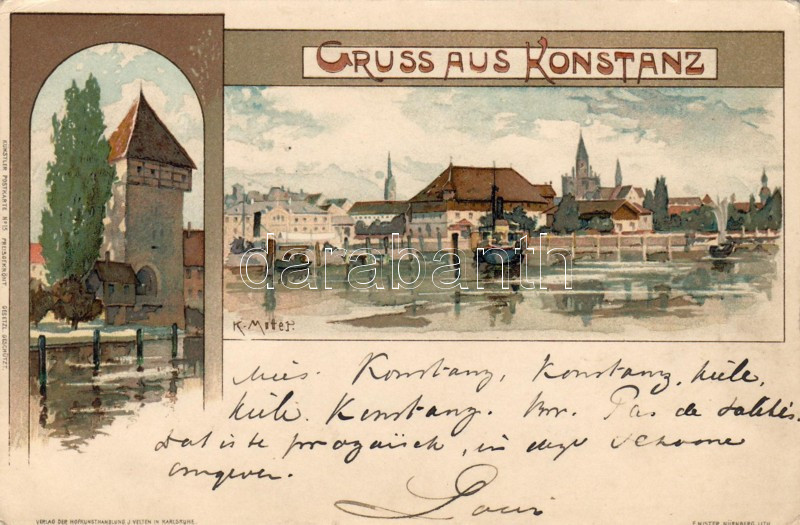 GRUSS AUS KONSTANZ
KÜNSTLER POSTKARTE No 15. PREISGEKRÖNT. GESETZL. GESCHÜTZT.
darabanth
K. Mutter.
Mies. Konstanz, Konstanz, kiele,
kiele. Konstanz. Brr. Pas de
Dat is te prozaïsch, in deze schoone
omgeven.
Louis
VERLAG DER HOFKUNSTHANDLUNG J. VELTEN IN KARLSRUHE.
F. NISTER, NÜRNBERG LITH.